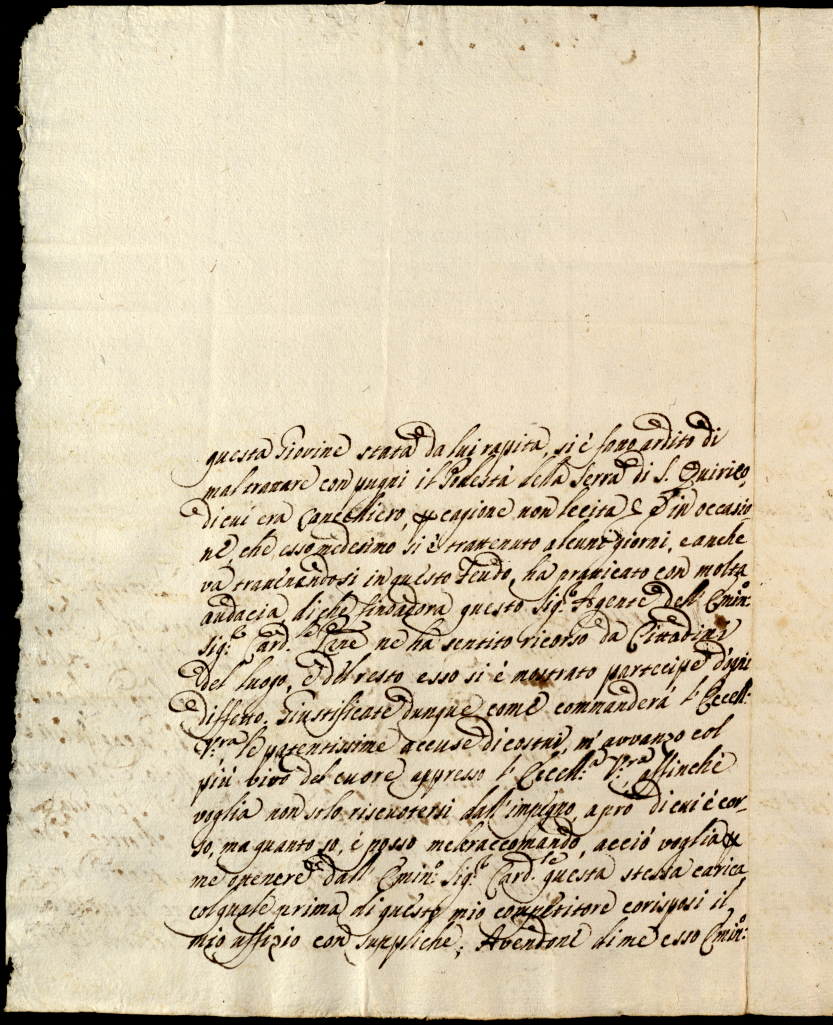 questa Giovine stata da lui rapita, si è fatto ardito di
maltrattare con pugni il Podestà della Serra di S. Quirico,
di cui era Cancelliero, per cagione non lecita e in occasio-
ne, che esso medesimo si è trattenuto alcuni giorni, e anche
và trattenendosi in questo Feudo, ha praticato con molta
audacia, di che sin adora questo Sig:r Agente dell' Emin:o
Sig:r Card:le ne ha sentito ricorso da Cittadini
del luogo, e del resto esso si è mostrato partecipe d'ogni
diffetto. Giustificate dunque come commanderà l' Eccell:a
V:ra le patentissime accuse di costui, m' avvanzo col
più vivo del cuore appresso l' Eccell:a V:ra affinche
voglia non solo riscuotersi dall' impegno, a pro di cui è cor-
so, ma quanto sò, e posso me le raccomando, acciò voglia per
me ottenere dall' Emin:o Sig:r Card:le questa stessa carica
col quale prima di questo mio competitore corisposi il
mio uffizio con suppliche; Avendone di me esso Emin:o